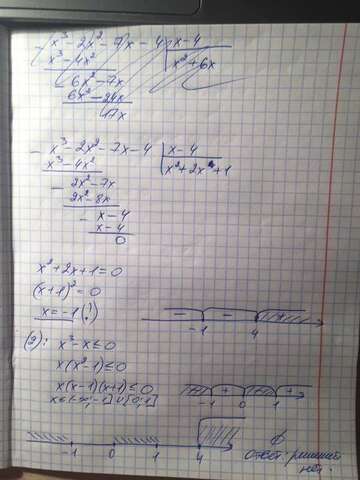 x³ - 2x² - 7x - 4 | x - 4
x³ - 4x² | x² + 6x
6x² - 7x
6x² - 24x
17x
x³ - 2x² - 7x - 4 | x - 4
x³ - 4x² | x² + 2x + 1
2x² - 7x
2x² - 8x
x - 4
x - 4
0
x² + 2x + 1 = 0
(x+1)² = 0
x = -1 (!)
- - +
-1 4
(2): x³ - x ≤ 0
x(x² - 1) ≤ 0
x(x-1)(x+1) ≤ 0
- + - +
-1 0 1
x ∈ (-∞; -1] ∪ [0; 1]
-1 0 1 4
∅
Ответ: решений
нет.